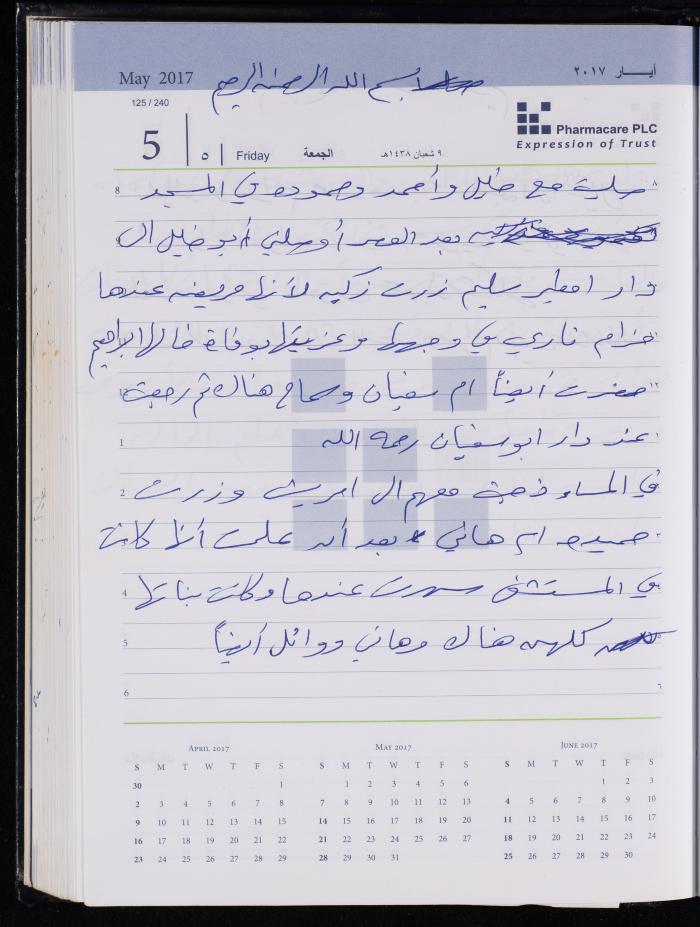 May 2017
أيـــار ٢٠١٧
بسم الله الرحمن الرحيم
125 / 240
5
٥
Friday
الجمعة
٩ شعبان ١٤٣٨هـ
Pharmacare PLC
Expression of Trust
8 صليت مع خليل وأحمد وحموده في المسجد ٨
بعد العصر أوصلني أبو خليل الى
دار سليم زرت زكيه لأنها مريضه عندها
حزام ناري في وجهها وعزيتها بوفاة خالها ابراهيم
حضرت أيضاً ام سفيان وسماح هناك ثم رجعت ١٢
1 عند دار ابو سفيان رحمه الله
2 في المساء ذهبت معهم الى وزرت
حميده ام هاني بعد أن علمت أنها كانت
4 في المستشفى سهرت عندها وكانت بناتها
5 كلهن هناك وهاني ووائل أيضاً
6 ٦
April 2017
S M T W T F S
30 1
2 3 4 5 6 7 8
9 10 11 12 13 14 15
16 17 18 19 20 21 22
23 24 25 26 27 28 29
May 2017
S M T W T F S
1 2 3 4 5 6
7 8 9 10 11 12 13
14 15 16 17 18 19 20
21 22 23 24 25 26 27
28 29 30 31
June 2017
S M T W T F S
1 2 3
4 5 6 7 8 9 10
11 12 13 14 15 16 17
18 19 20 21 22 23 24
25 26 27 28 29 30